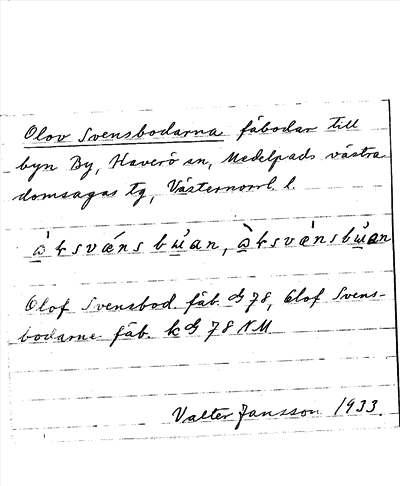 Olov Svensbodarna fäbodar till
byn By, Haverö sn, Medelpads västra
domsagas tg, Västernorrl. l.
Olof Svensbod. fäb. G 78, Olof Svens-
bodarne fäb. k G 78 NM
Valter Jansson 1933.